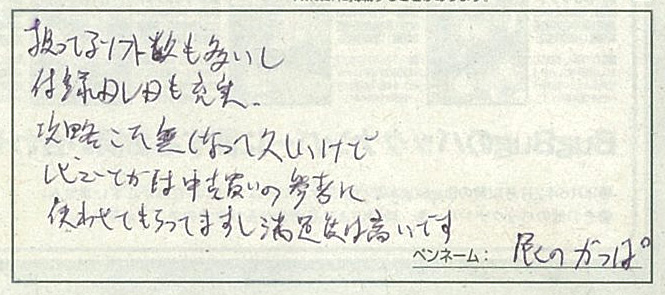 扱ってるソフト数も多いし
付録DVDも充実。
攻略こそ無くなって久しいけど
レビューとかは中古買いの参考に
使わせてもらってますし満足度は高いです
ペンネーム： 尻のかっぱ